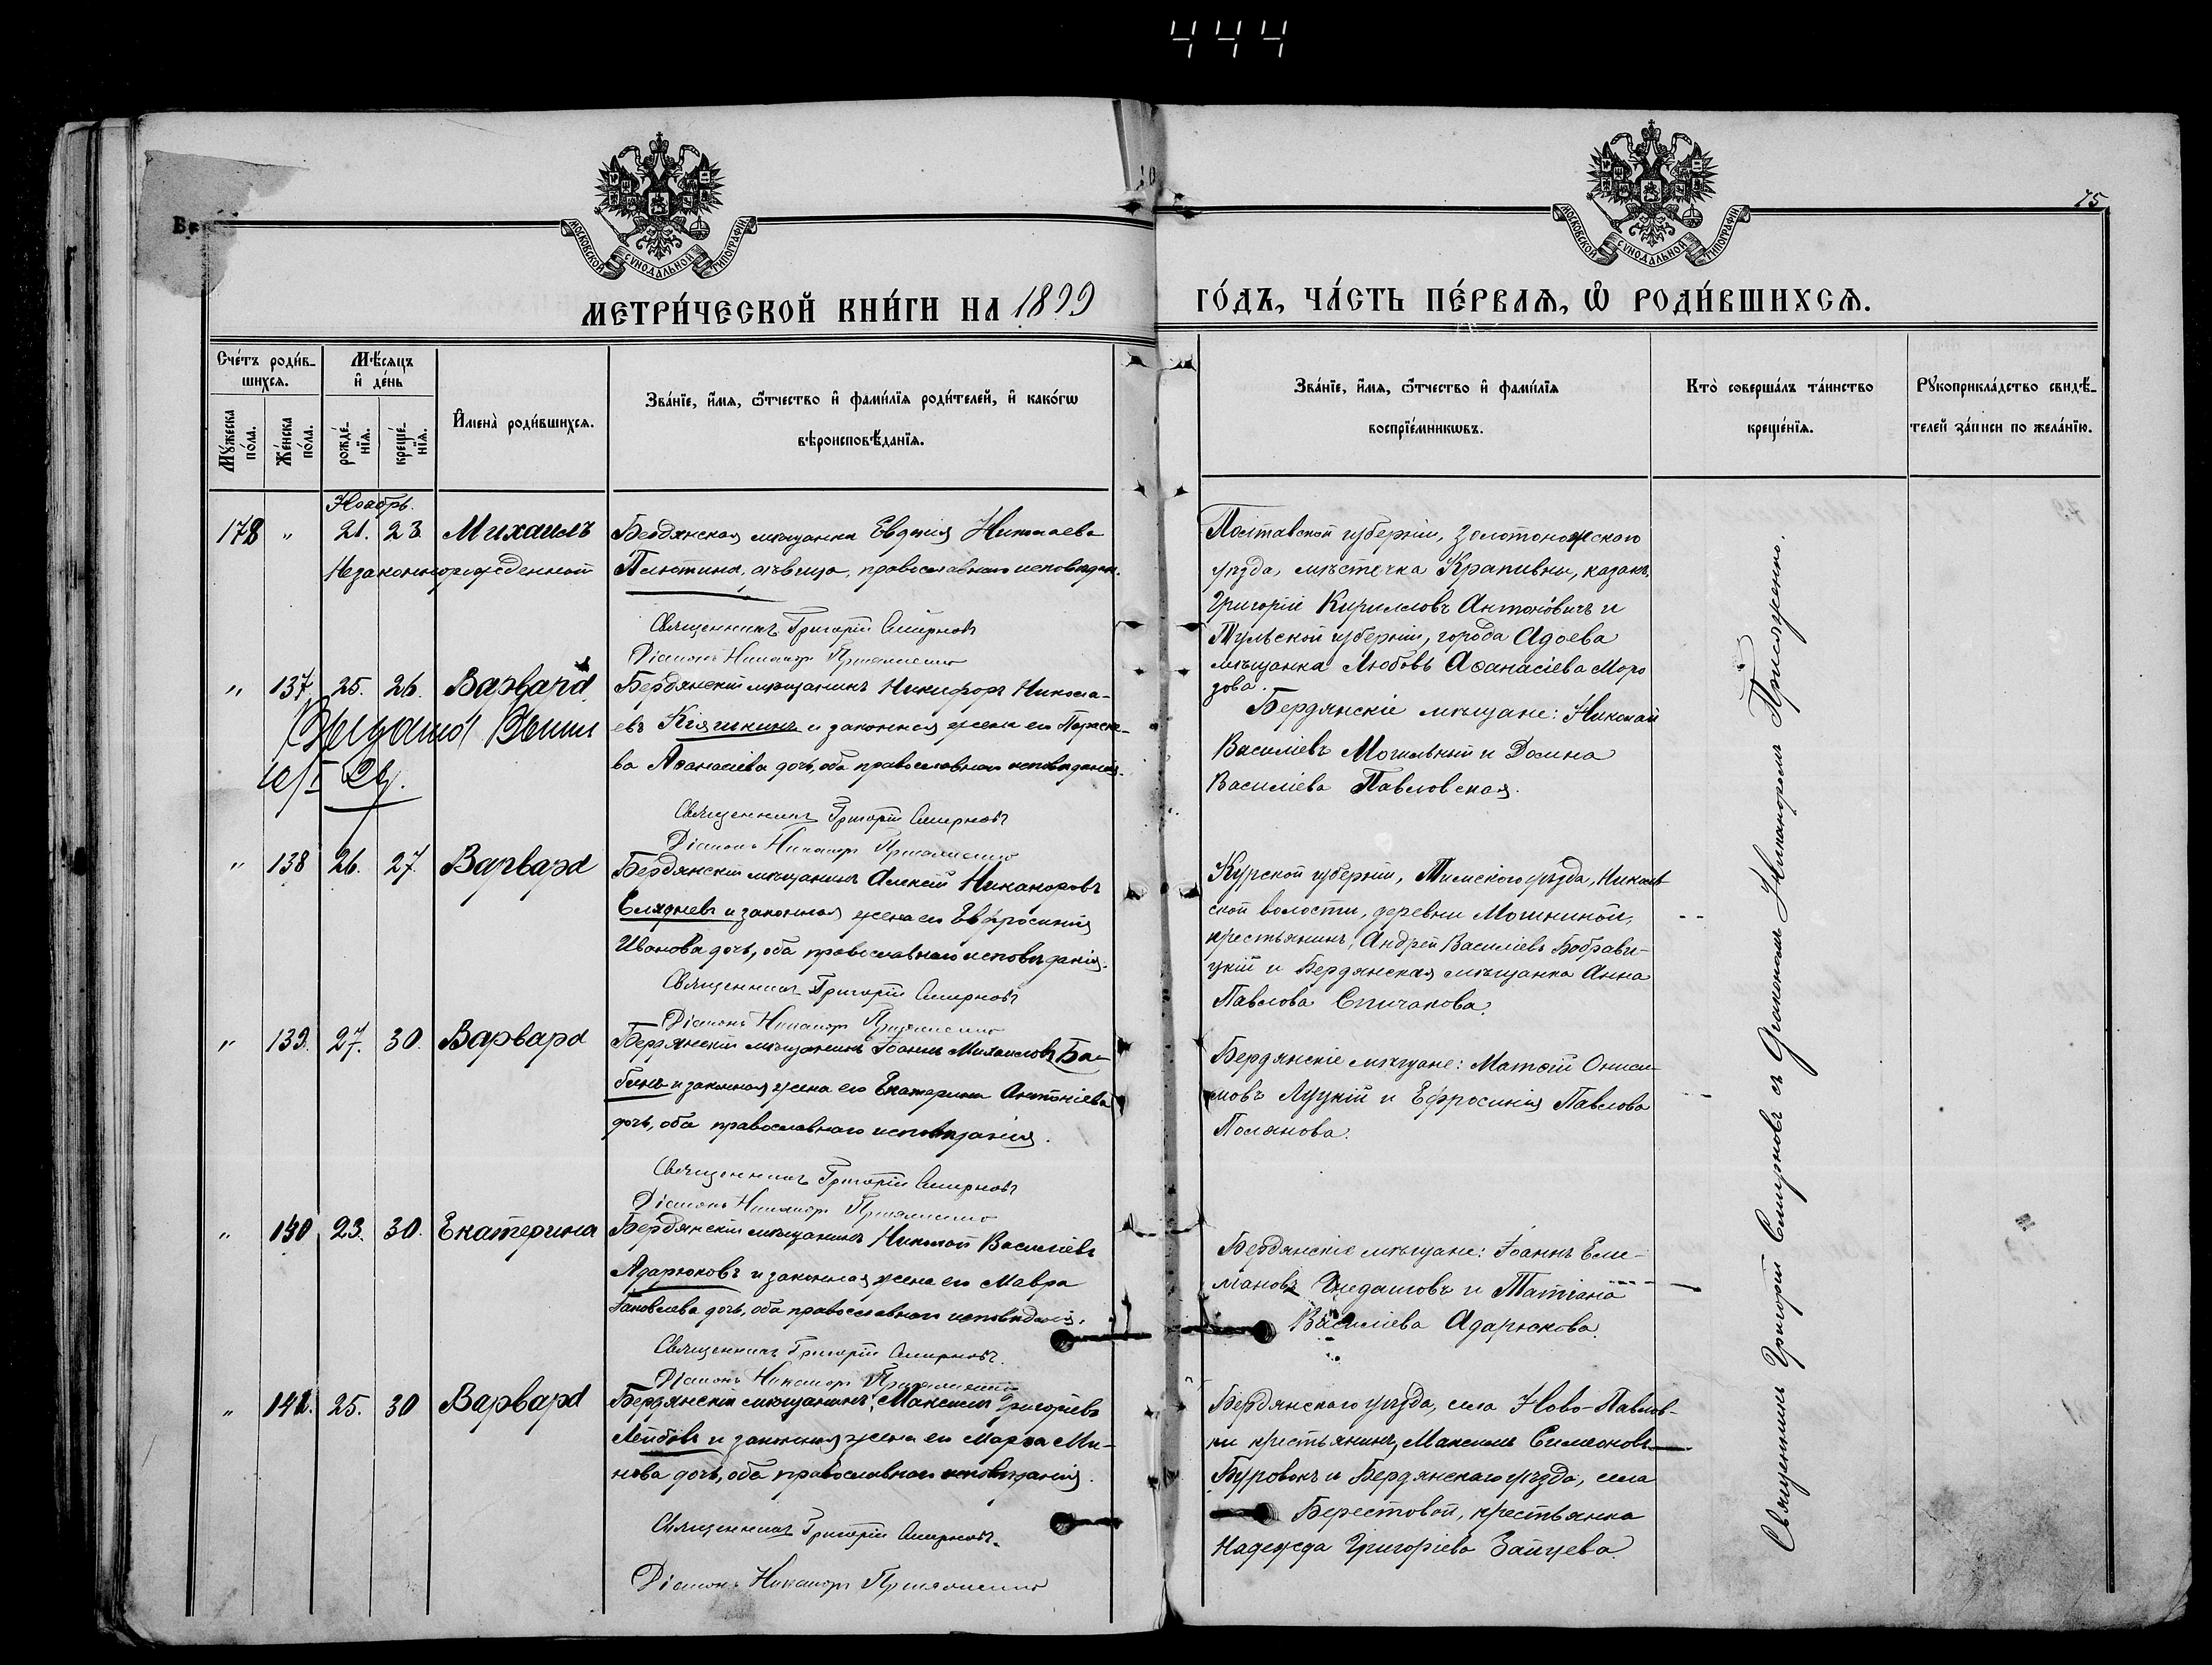 444
75
МОСКОВСКОЙ СѴНОДАЛЬНОЙ ТИПОГРАФІИ
МОСКОВСКОЙ СѴНОДАЛЬНОЙ ТИПОГРАФІИ
МЕТРИ́ЧЕСКОЙ КНИ́ГИ НА 1899
ГО́ДЪ, ЧА́СТЬ ПЕ́РВАѦ, Ѡ РОДИ́ВШИХСѦ.
Сче́тъ роди́в-
шихсѧ.
Мѣ́сѧцъ
и҆ де́нь
Мꙋ́жеска
по́ла.
Же́нска
по́ла.
рожде́-
нїѧ.
креще́-
нїѧ.
И҆мена̀ роди́вшихсѧ.
Зва́нїе, и҆́мѧ, ѻ҆́тчество и҆ фами́лїѧ роди́телей, и҆ како́гѡ
вѣроисповѣ́данїѧ.
Зва́нїе, и҆́мѧ, ѻ҆́тчество и҆ фами́лїѧ
воспрїе́мникѡвъ.
Кто̀ соверша́лъ та́инство
креще́нїѧ.
Рꙋкоприкла́дство свидѣ́-
телей за́писи по жела́нїю.
Ноябрь.
178 " 21. 23. Михаилъ
Незаконнорожденный
Бердянская мѣщанка Евдокія Николаева
Плютина, дѣвица, православнаго исповѣдан.
Священникъ Григорій Смирновъ
Діаконъ Никаноръ
Полтавской губерніи, Золотоношскаго
уѣзда, мѣстечка Крапивны, казакъ,
Григорій Кирилловъ Антоновичъ и
Тульской губерніи, города Адоева
мѣщанка Любовь Аѳанасіева Моро
зова.
" 137. 25. 26. Варвара
Бердянскій мѣщанинъ Никифоръ Никола-
евъ Кіяшкинъ и законная жена его Параске-
ва Аѳанасіева дочь, оба православнаго исповѣданія.
Священникъ Григорій Смирновъ
Діаконъ Никаноръ
Бердянскіе мѣщане: Николай
Василіевъ Могильный и Домна
Василіева Павловская.
" 138 26. 27. Варвара
Бердянскій мѣщанинъ Алексій Никаноровъ
Слядневъ и законная жена его Евфросинія
Иванова дочь, оба православнаго исповѣданія.
Священникъ Григорій Смирновъ
Діаконъ Никаноръ
Курской губерніи, Тимскаго уѣзда, Николаев-
ской волости, деревни Мошниной,
крестьянинъ, Андрей Василіевъ Бобрави-
цкій и Бердянская мѣщанка Анна
Павлова Спичакова.
" 139. 27. 30. Варвара
Бердянскій мѣщанинъ Іоаннъ Михаиловъ Ба-
бинъ и законная жена его Екатерина Антоніева
дочь, оба православнаго исповѣданія.
Священникъ Григорій Смирновъ
Діаконъ Никаноръ
Бердянскіе мѣщане: Матѳій Ониси-
мовъ Луцкій и Ефросинія Павлова
Полянова.
" 140 23. 30. Екатерина
Бердянскій мѣщанинъ Николай Василіевъ
Адарюковъ и законная жена его Мавра
Іаковлева дочь, оба православнаго исповѣданія.
Священникъ Григорій Смирновъ.
Діаконъ Никаноръ
Бердянскіе мѣщане: Іоаннъ Еме-
ліановъ и Татіана
Василіева Адарюкова.
" 141. 25. 30 Варвара
Бердянскій мѣщанинъ, Максимъ Григорьевъ
Лейбовъ и законная жена его Марѳа Ми-
нова дочь, оба православнаго исповѣданія.
Священникъ Григорій Смирновъ.
Діаконъ Никаноръ
Бердянскаго уѣзда, села Ново-Павлов-
ки крестьянинъ, Максимъ Симеоновъ
Буровокъ и Бердянскаго уѣзда, села
Берестовой, крестьянка
Надежда Григоріева Зайцева.
Священникъ Григорій Смирновъ съ Діакономъ Никаноромъ